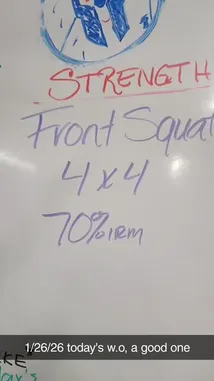 STRENGTH
Front Squat
4x4
70% 1RM
1/26/26 today's w.o, a good one
KE"
ax's